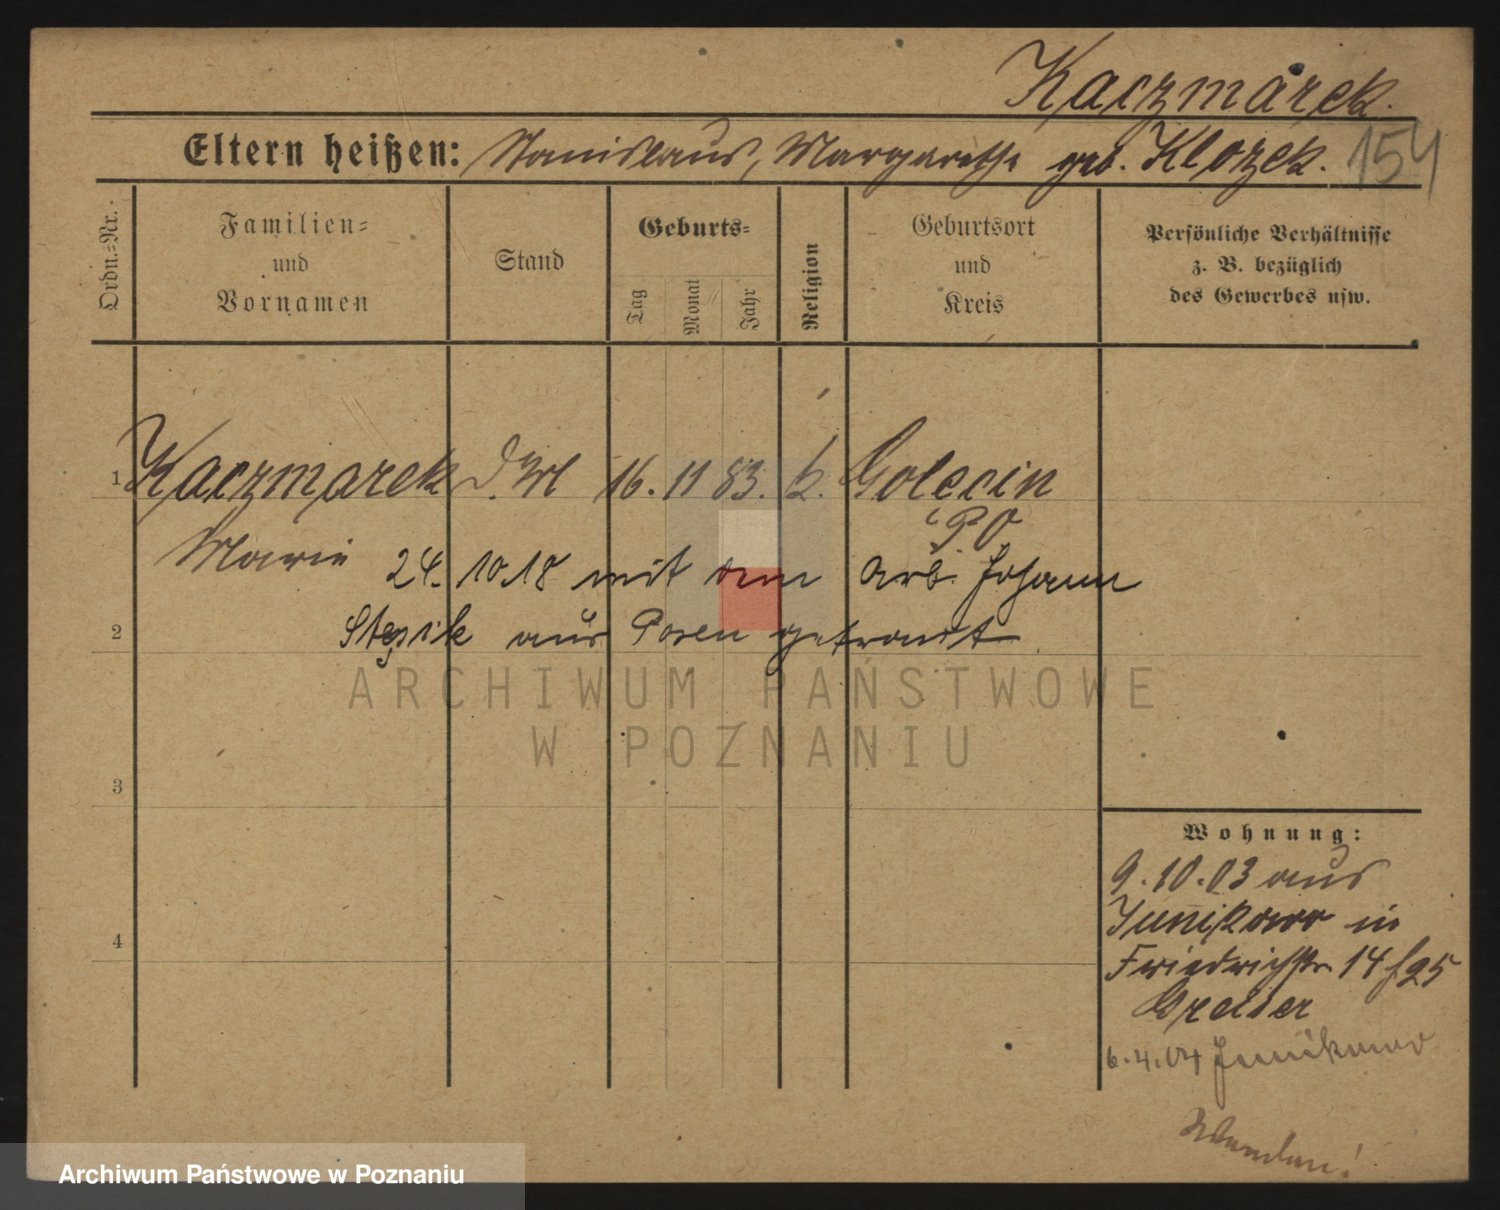 Kaczmarek.
Eltern heißen: Stanislaus, Margarethe geb. Klozek. 154
Ordn.-Nr.
Familien-
und
Vornamen
Stand
Geburts-
Tag
Monat
Jahr
Religion
Geburtsort
und
Kreis
Persönliche Verhältnisse
z. B. bezüglich
des Gewerbes usw.
1 Kaczmarek 16. 11 83. k. Golecin
Marie PO
24. 10 18 mit dem Arb. Johann
2 aus Posen getraut
3
4
Wohnung:
9.10.03 aus
Junikowo in
Friedrichstr 14
6.4.04 Junikowo
ARCHIWUM PAŃSTWOWE
W POZNANIU
Archiwum Państwowe w Poznaniu